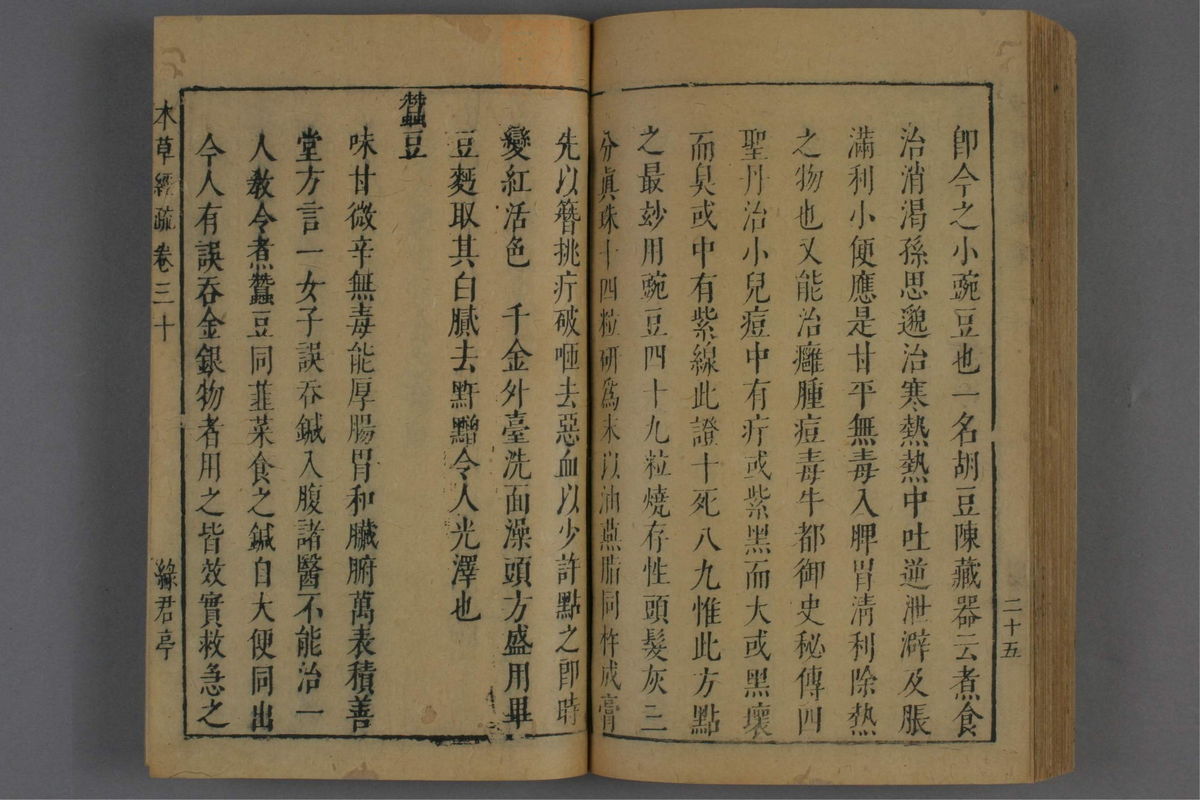 二十五
卽今之小豌豆也一名胡豆陳藏器云煮食
治消渴孫思邈治寒熱熱中吐逆泄澼及脹
滿利小便應是甘平無毒入脾胃淸利除熱
之物也又能治癰腫痘毒牛都御史秘傳四
聖丹治小兒痘中有疔或紫黑而大或黑壞
而臭或中有紫線此證十死八九惟此方點
之最玅用豌豆四十九粒燒存性頭髮灰三
分眞珠十四粒硏爲末以油燕脂同杵成膏
先以簪挑疔破咂去惡血以少許點之卽時
變紅活色　千金外臺洗面澡頭方盛用畢
豆麪取其白膩去䵟䵴令人光澤也
蠶豆
味甘微辛無毒能厚腸胃和臟腑萬表積善
堂方言一女子誤吞鍼入腹諸醫不能治一
人敎令煮蠶豆同韮菜食之鍼自大便同出
今人有誤吞金銀物者用之皆效實救急之
本草經疏　卷三十　綠君亭